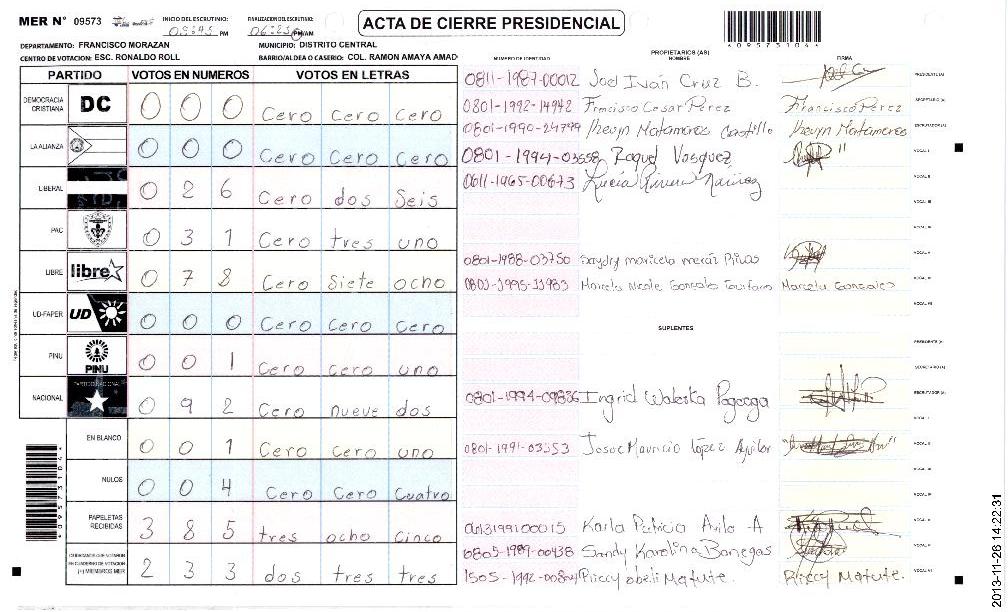 MER Nº 09573
INICIO DEL ESCRUTINIO: 05:45 PM
FINALIZACION DEL ESCRUTINIO: PM/AM
ACTA DE CIERRE PRESIDENCIAL
4095731044
DEPARTAMENTO: FRANCISCO MORAZAN
MUNICIPIO: DISTRITO CENTRAL
CENTRO DE VOTACION: ESC. RONALDO ROLL
BARRIO/ALDEA O CASERIO: COL. RAMON AMAYA AMAD
PARTIDO VOTOS EN NUMEROS VOTOS EN LETRAS
DEMOCRACIA CRISTIANA DC 0 0 0 Cero Cero Cero
LA ALIANZA 0 0 0 Cero Cero Cero
LIBERAL 0 2 6 Cero dos Seis
PAC 0 3 1 Cero tres uno
LIBRE libre 0 7 8 Cero Siete ocho
UD-FAPER UD 0 0 0 Cero Cero Cero
PINU PINU 0 0 1 Cero cero uno
NACIONAL 0 9 2 Cero nueve dos
EN BLANCO 0 0 1 Cero Cero uno
NULOS 0 0 4 Cero Cero Cuatro
PAPELETAS RECIBIDAS 3 8 5 tres ocho Cinco
CIUDADANOS QUE VOTARON EN CUADERNO DE VOTACION (+) MIEMBROS MER 2 3 3 dos tres tres
NUMERO DE IDENTIDAD
PROPIETARIOS (AS)
NOMBRE
FIRMA
0811-1987-00012 Joel Iván Cruz B. PRESIDENTE (A)
0801-1992-14942 Francisco Cesar Perez Francisco Perez
0801-1990-24799 Matamoros Castillo Matamoros ESCRUTADOR (A)
0801-1994-03558 Raquel Vasquez VOCAL I
0611-1965-00673 Lucia Rivera VOCAL II
VOCAL III
0801-1988-03750
0801-1995-11983 Marcela Nicole Gonzales Marcela Gonzales
SUPLENTES
PRESIDENTE (A)
SECRETARIO (A)
0801-1994-09836 Ingrid Waleska ESCRUTADOR (A)
VOCAL I
0801-1991-03553 Josue Mauricio López Aguilar VOCAL II
VOCAL III
VOCAL IV
Karla Patricia Avila A
0805-1989-00438 Sandy Karolina Banegas
Matute. Matute.
4095731044
2013-11-26 14:22:31